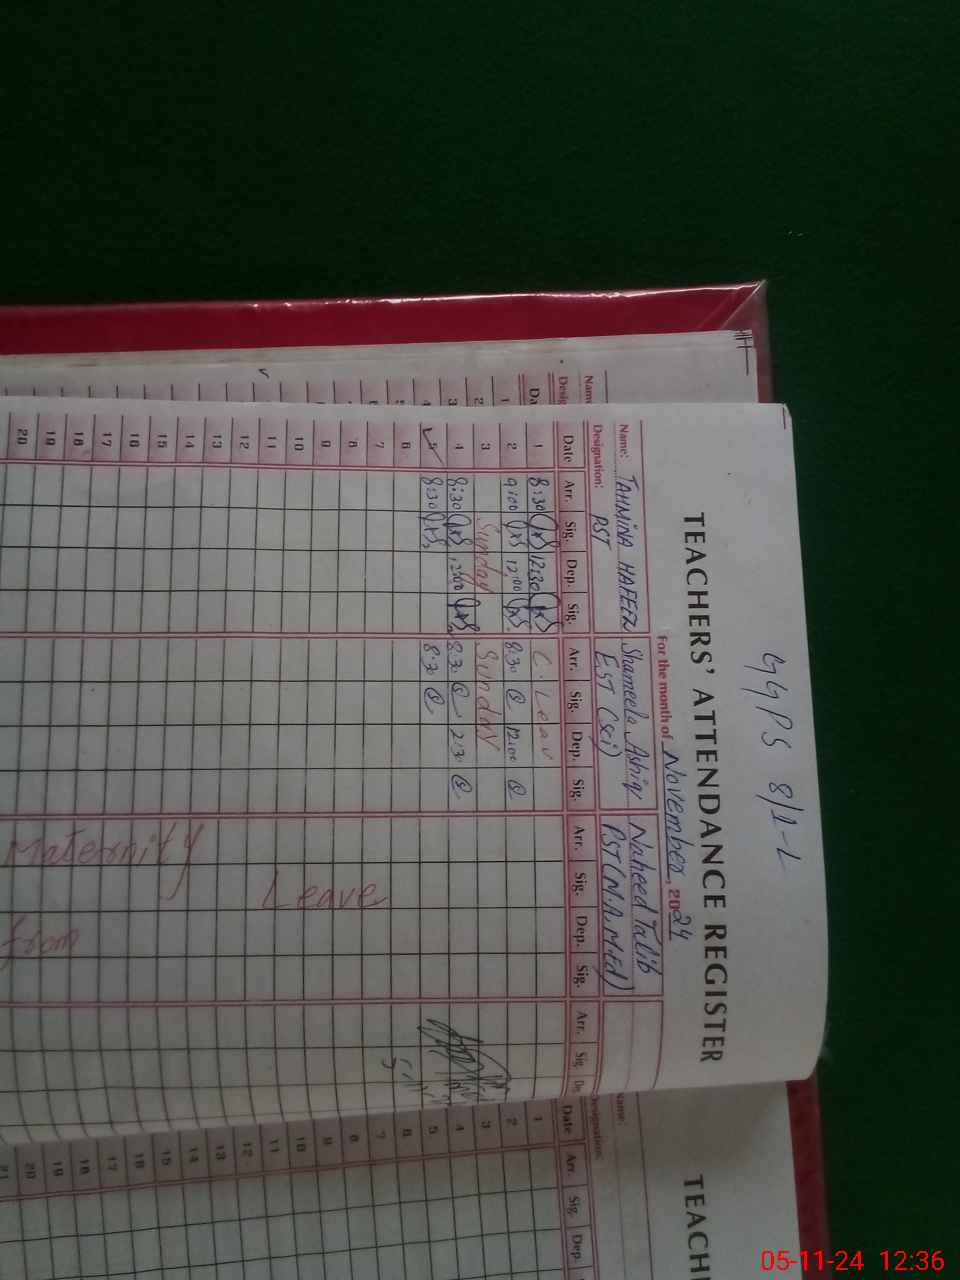 GGPS 8/1-L
TEACHERS' ATTENDANCE REGISTER
For the month of November, 2024
Name: TAHMINA HAFEEZ Shameela Ashiq Naheed Talib
Designation: PST EST (Sci) PST (M.A, M.Ed)
Date Arr. Sig. Dep. Sig. Arr. Sig. Dep. Sig. Arr. Sig. Dep. Sig. Arr. Sig.
1 8:30 12:30 C. Leav
2 9:00 12:00 8:30 12:00
3 Sunday Sunday
4 8:30 12:00 8:30 2:30
5 8:30 8:30
6
7
8
9
10
11
12
13
14
15
16
17
18
19
20
Maternity Leave
from
TEACH
Name:
Designation:
Date Arr. Sig. Dep.
1
2
3
4
5
6
7
8
9
10
11
12
13
14
15
16
17
18
19
20
21
05-11-24 12:36